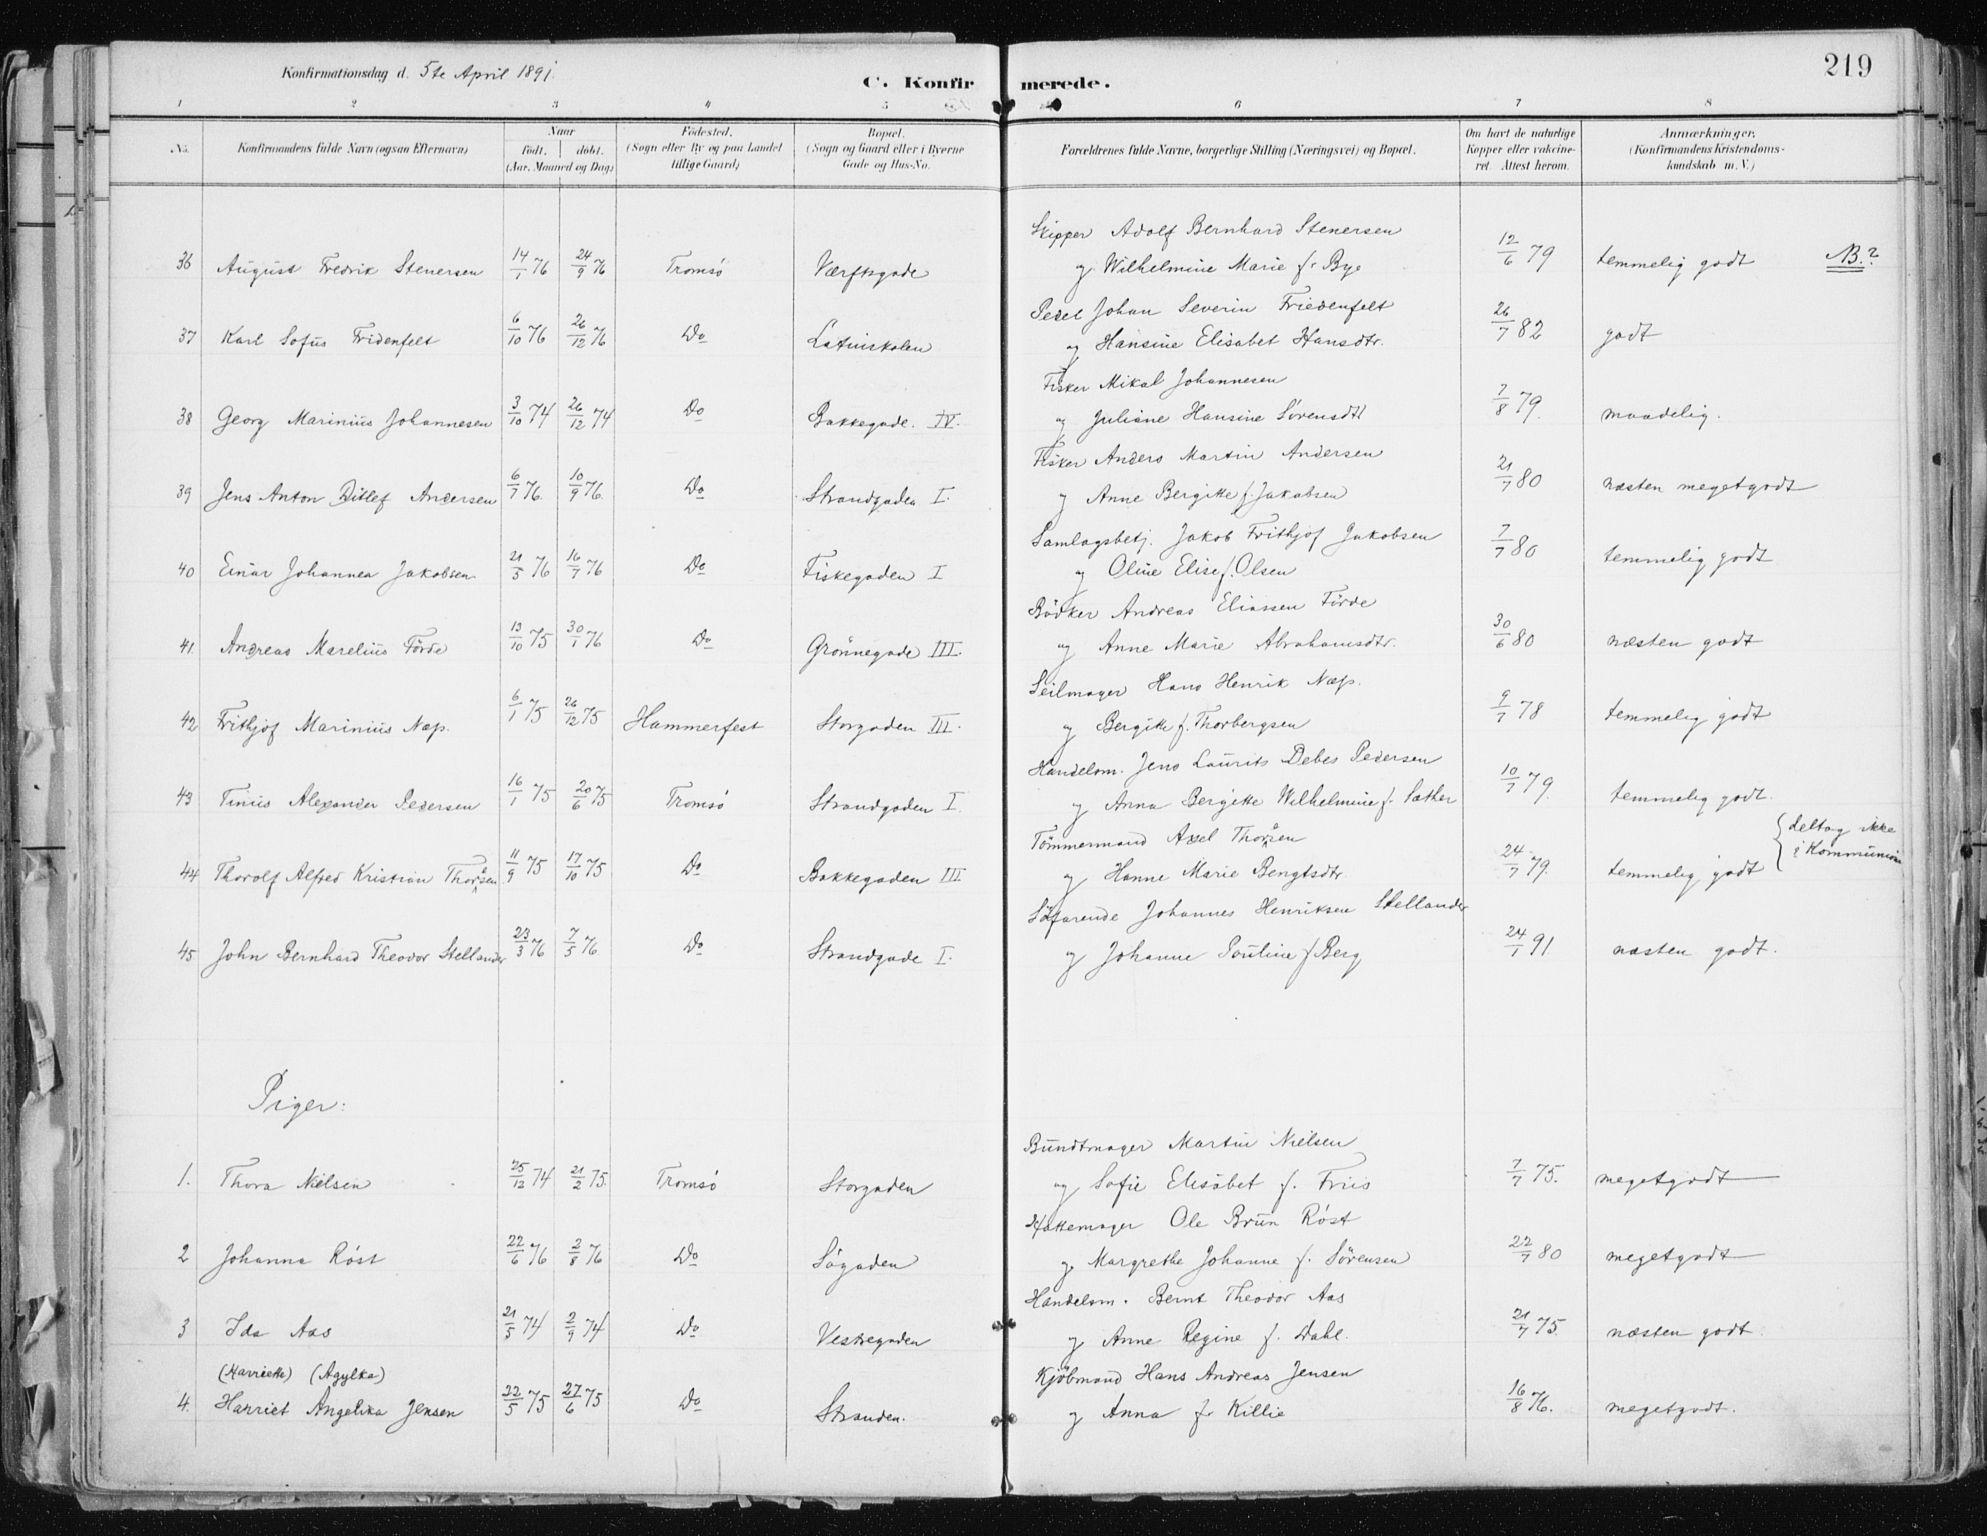 219
Konfirmationsdag d. 5te April 1891.
C. Konfirmerede.
1 2 3 4 5 6 7 8
No. Konfirmandens fulde Navn (ogsaa Efternavn) Naar født, døbt. (Aar, Maaned og Dag) Fødested. (Sogn eller By og paa Landet tillige Gaard) Bopæl. (Sogn og Gaard eller i Byerne Gade og Hus-No. Forældrenes fulde Navne, borgerlige Stilling (Næringsvei) og Bopæl. Om havt de naturlige Kopper eller vakcineret. Attest herom. Anmærkninger. (Konfirmandens Kristendomskundskab m. V.)
Skipper Adolf Bernhard Stenersen
36 August Fredrik Stenersen 14/1 76 24/9 76 Tromsö Værftsgade og Wilhelmine Marie f. Bye 12/6 79 temmelig godt NB.?
Pedel Johan Severin Friedenfelt
37 Karl Sofus Fridenfelt 6/10 76 26/12 76 Do Latinskolen og Hansine Elisabet Hansdtr. 26/7 82 godt
Fisker Mikal Johannesen
38 Georg Marinius Johannesen 3/10 74 26/12 74 Do Bakkegade. IV. og Juliane Hansine Sörensdtr 7/8 79. maadelig.
Fisker Anders Martin Andersen
39 Jens Anton Ditlef Andersen 6/7 76. 10/9 76. Do Strandgaden I. og Anne Bergitte f. Jakobsen 21/7 80 næsten megetgodt
Samlagsbetj. Jakob Frithjof Jakobsen
40 Einar Johannes Jakobsen 21/5 76 16/7 76 Do Fiskegaden I og Oline Elise f. Olsen 7/7 80 temmelig godt
Bödker Andreas Eliassen Förde
41. Andreas Marelius Förde 13/10 75 30/1 76 Do Grönnegade III. og Anne Marie Abrahamsdtr. 30/6 80 næsten godt
Seilmager Hans Henrik Næss.
42 Frithjof Marinius Næss. 6/1 75 26/12 75 Hammerfest Storgaden III. og Bergitte f. Thorbergsen 9/7 78 temmelig godt
Handelsm. Jens Laurits Debes Pedersen
43 Tinius Alexander Pedersen 16/1 75 20/6 75 Tromsö Strandgaden I. og Anna Bergitte Wilhelmine f. Sæther 10/7 79. temmelig godt.
Tömmermand Axel Thorsen
44 Thorolf Alfred Kristian Thorsen 11/9 75 17/10 75 Do Bakkegaden III og Hanne Marie Bengtsdtr. 24/7 79. temmelig godt { deltog ikke i Kommunion
Söfarende Johannes Henriksen Stellander
45 John Bernhard Theodor Stellander 23/3 76 7/5 76 Do Strandgade I. og Johanne Pauline f. Berg 24/1 91. næsten godt.
Piger:
Bundtmager Martin Nielsen
1. Thora Nielsen 25/12 74 21/2 75. Tromsö Storgaden og Sofie Elisabet f. Friis 7/7 75. megetgodt
Hattemager Ole Brun Röst
2 Johanna Röst 22/6 76 2/8 76 Do Sögaden og Margrethe Johanne f. Sörensen 22/7 80 megetgodt
Handelsm. Bernt Theodor Aas
3 Ida Aas 21/5 74 2/9 74 Do Vestregaden og Anne Regine f. Dahl. 21/7 75. næsten godt.
(Harriette) (Agylka) Kjöbmand Hans Andreas Jensen
4. Harriet Angelika Jensen 22/5 75 27/6 75 Do Stranden. og Anna f. Killie 16/8 76. megetgodt.